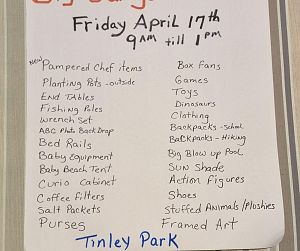 Friday April 17th
9AM till 1PM
New Pampered Chef items
Planting Pots - outside
End Tables
Fishing Poles
Wrench Set
ABC Photo BackDrop
Bed Rails
Baby Equipment
Baby Beach Tent
Curio Cabinet
Coffee Filters
Salt Packets
Purses
Box Fans
Games
Toys
Dinosaurs
Clothing
Backpacks - School
Backpacks - Hiking
Big Blow up Pool
Sun Shade
Action Figures
Shoes
Stuffed Animals/Plushies
Framed Art
Tinley Park